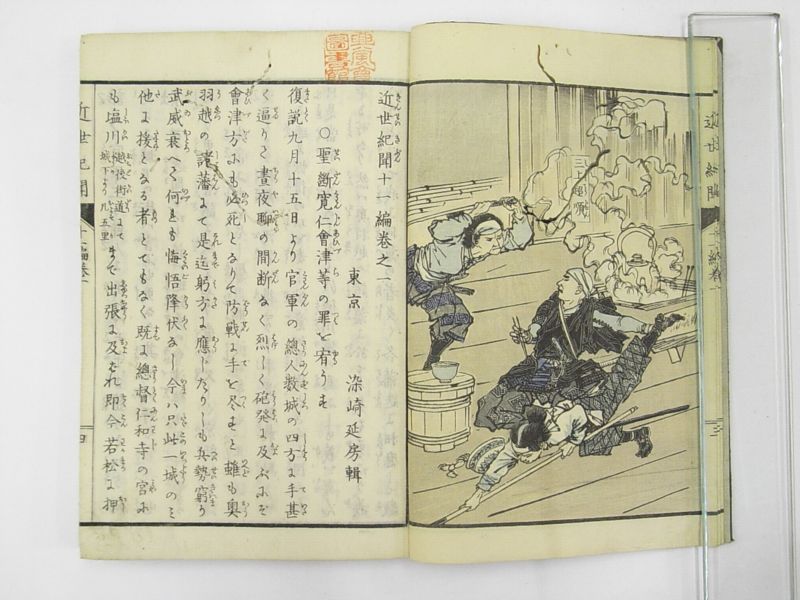 近世紀聞十一編巻之一
東京 染崎延房輯
○聖断寛仁會津等の罪を宥うす
復説九月十五日より官軍の總人数城の四方に手甚
く逼りて晝夜聊の間断なく烈しく砲発に及ぶにぞ
會津方にも必死となりて防戦に手を尽すと雖も奥
羽越の諸藩にて是迄躬方に應じたりしも兵勢窮り
武威衰へて何れも悔悟降伏なし今ハ只此一城のミ
他に援となる者とてもなく既に總督仁和寺の宮に
も塩川 越後街道にて城下より凡五里 まで出張に及ばれ即今若松に押
近世紀聞
十一編巻一
四
近世紀聞
十一編巻
三